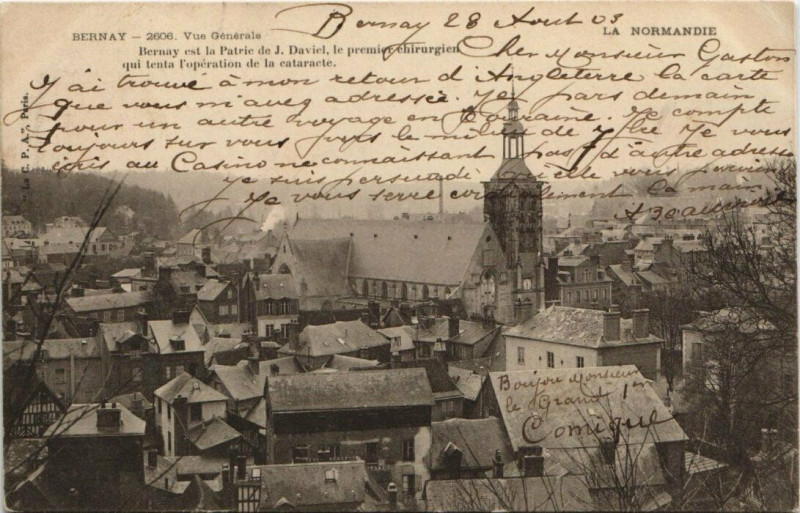 Bernay 28 Aout 03
BERNAY - 2606. Vue Générale
LA NORMANDIE
Bernay est la Patrie de J. Daviel, le premier chirurgien
qui tenta l'opération de la cataracte.
Cher Monsieur Gaston
J'ai trouvé à mon retour d'Angleterre la carte
que vous m'avez adressée. Je pars demain
pour un autre voyage en Touraine. Je compte
toujours sur vous vers le milieu de 7bre Je vous
écris au Casino ne connaissant pas d'autre adresse
Je suis persuadé qu'elle vous
Je vous serre cordialement la main
C. P. A. Paris.
Boujou Monsieur
le Grand 1er
Comique